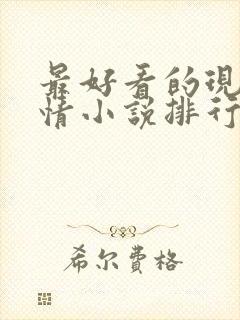 最好看的現
情小說排行
希尔費格